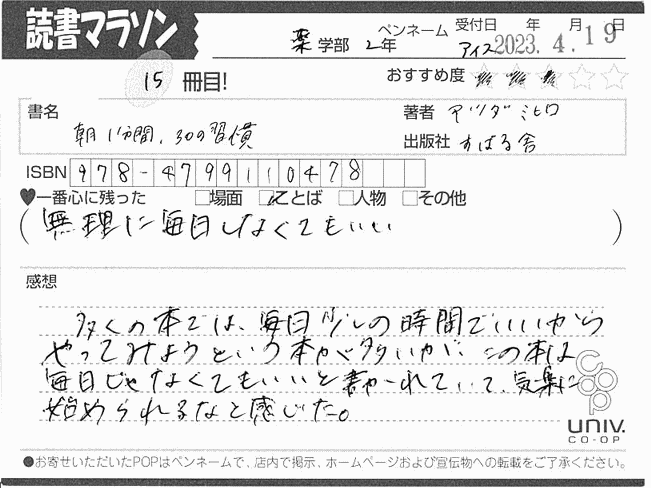 読書マラソン
薬 学部 2年
ペンネーム アイス
受付日 年 月 日
2023.4.19
15 冊目!
おすすめ度 ★★★☆☆
書名
朝1分間、30の習慣
著者 マツダミヒロ
出版社 すばる舎
ISBN 978-4799110478
♥一番心に残った □場面 ☑ことば □人物 □その他
(無理に毎日しなくてもいい)
感想
多くの本では、毎日少しの時間でいいから
やってみようという本が多いが、この本は
毎日じゃなくてもいいと書かれていて、気楽に
始められるなと感じた。
coop
UNIV.
CO-OP
●お寄せいただいたPOPはペンネームで、店内で掲示、ホームページおよび宣伝物への転載をご了承ください。